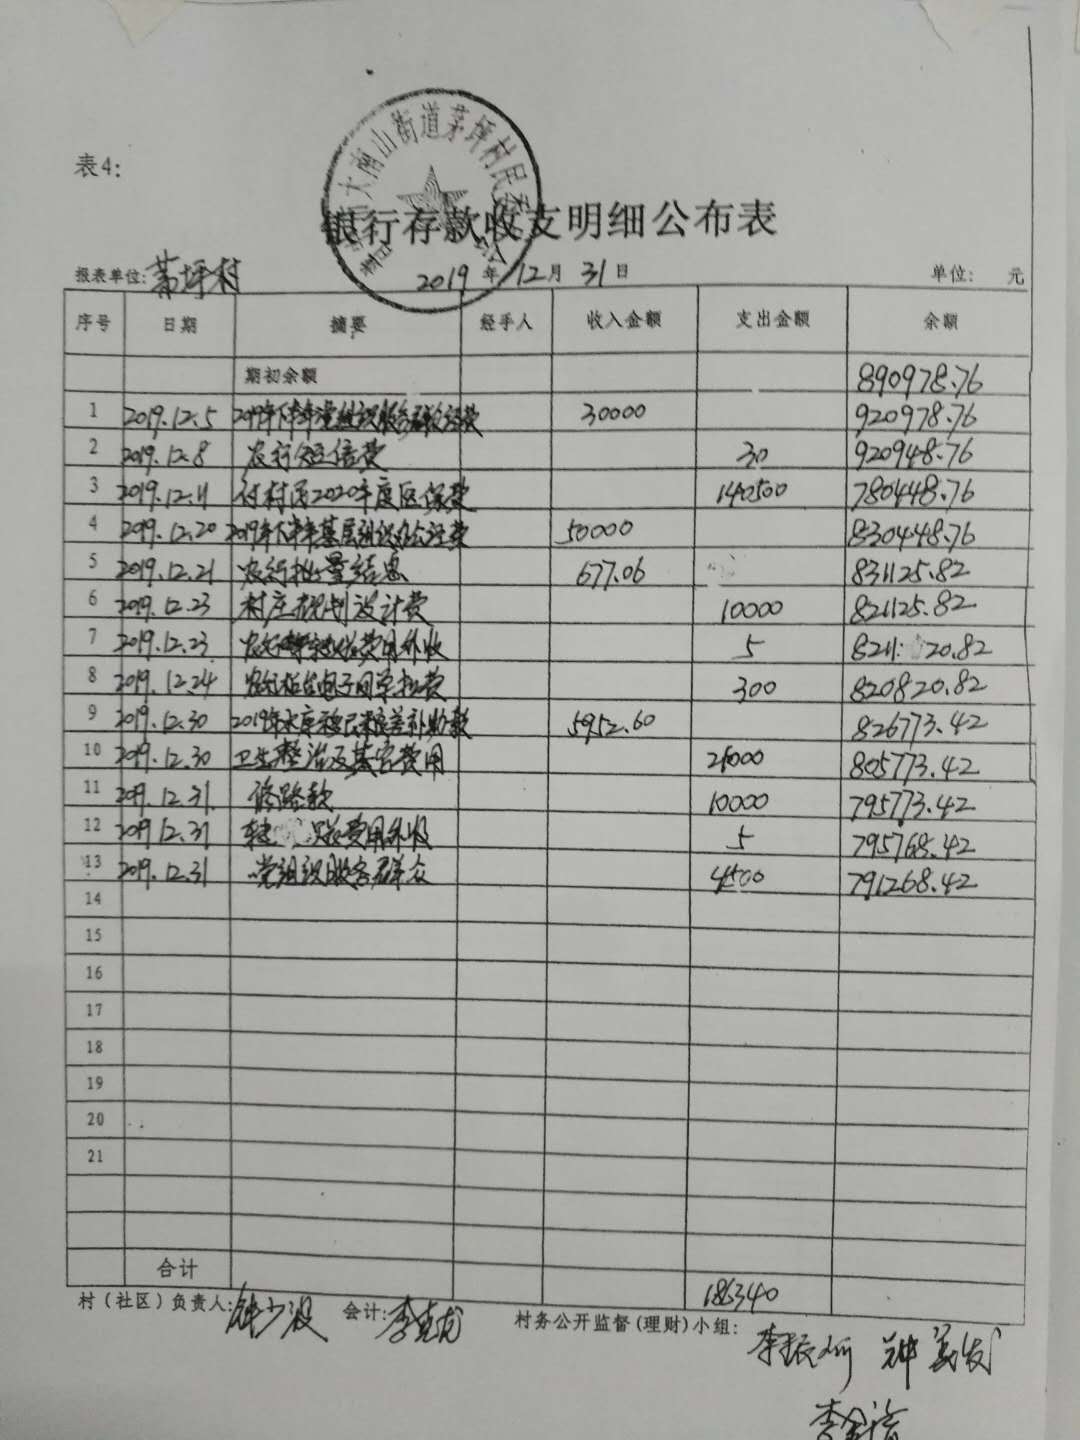 表4:
大南山街道茅坪村民委
银行存款收支明细公布表
报表单位: 茅坪村 2019年12月31日 单位: 元
序号 日期 摘要 经手人 收入金额 支出金额 余额
期初余额 890978.76
1 2019.12.5 2019年下半年党组织服务群众经费 30000 920978.76
2 2019.12.8 农行短信费 30 920948.76
3 2019.12.11 付村民2020年度医保费 140500 780448.76
4 2019.12.20 2019年下半年基层组织办公经费 50000 830448.76
5 2019.12.21 农行批量结息 677.06 831125.82
6 2019.12.23 村庄规划设计费 10000 821125.82
7 2019.12.23 农行 费用外收 5 8211 20.82
8 2019.12.24 农行 电子回单 费 300 820820.82
9 2019.12.30 2019年水库移民 补助款 5952.60 826773.42
10 2019.12.30 卫生整治及其它费用 21000 805773.42
11 2019.12.31. 修路款 10000 795773.42
12 2019.12.31 费用外收 5 795768.42
13 2019.12.31 党组织服务群众 4500 791268.42
14
15
16
17
18
19
20
21
合计 186340
村（社区）负责人: 钟少波 会计: 李 村务公开监督(理财)小组: 李振 钟
李金